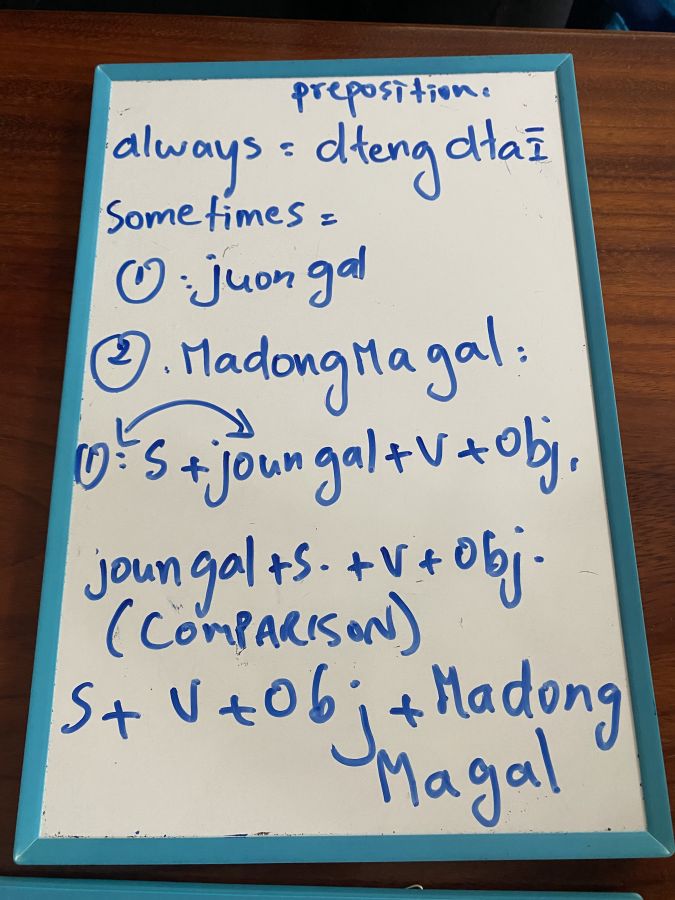 preposition.
always = dteng dtaī
Sometimes =
① : juon gal
② . Madong Ma gal :
① : S + joun gal + V + Obj.
joun gal + S. + V + Obj.
(COMPARISON)
S + V + Obj + Madong
Magal